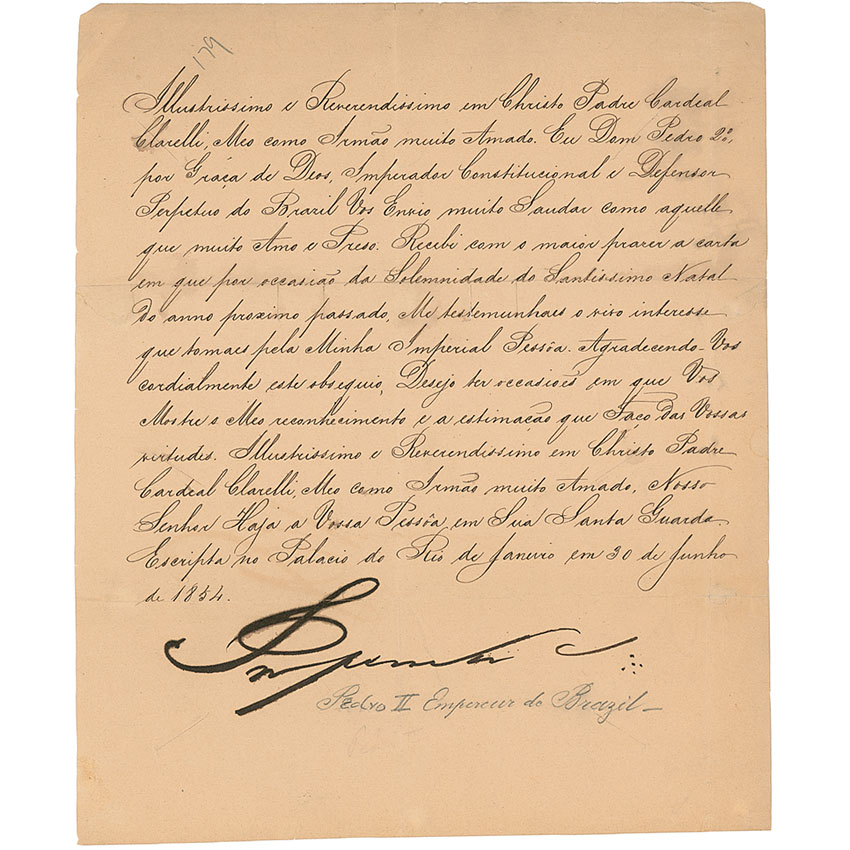 179
Illustrissimo e Reverendissimo em Christo Padre Cardeal
Clarelli, Meo como Irmão muito Amado. Eu Dom Pedro 2º,
por Gráça de Deos, Imperador Constitucional e Defensor
Perpetuo do Brazil Vos Envio muito Saudar como aquelle
que muito Amo e Préso. Recebi com o maior prazer a carta
em que por occasião da Solemnidade do Santissimo Natal
do anno proximo passado, Me testemunhaes o vivo interesse
que tomaes pela Minha Imperial Pessôa. Agradecendo-Vos
cordialmente este obsequio, Desejo ter occasiões em que Vos
Mostre o Meo reconhecimento e a estimação que Faço das Vossas
virtudes. Illustrissimo e Reverendissimo em Christo Padre
Cardeal Clarelli, Meo como Irmão muito Amado, Nosso
Senhor Haja a Vossa Pessôa em Sua Santa Guarda.
Escripta no Palacio do Rio de Janeiro em 30 de Junho
de 1854.
Imperador
Pedro II Empereur do Brazil